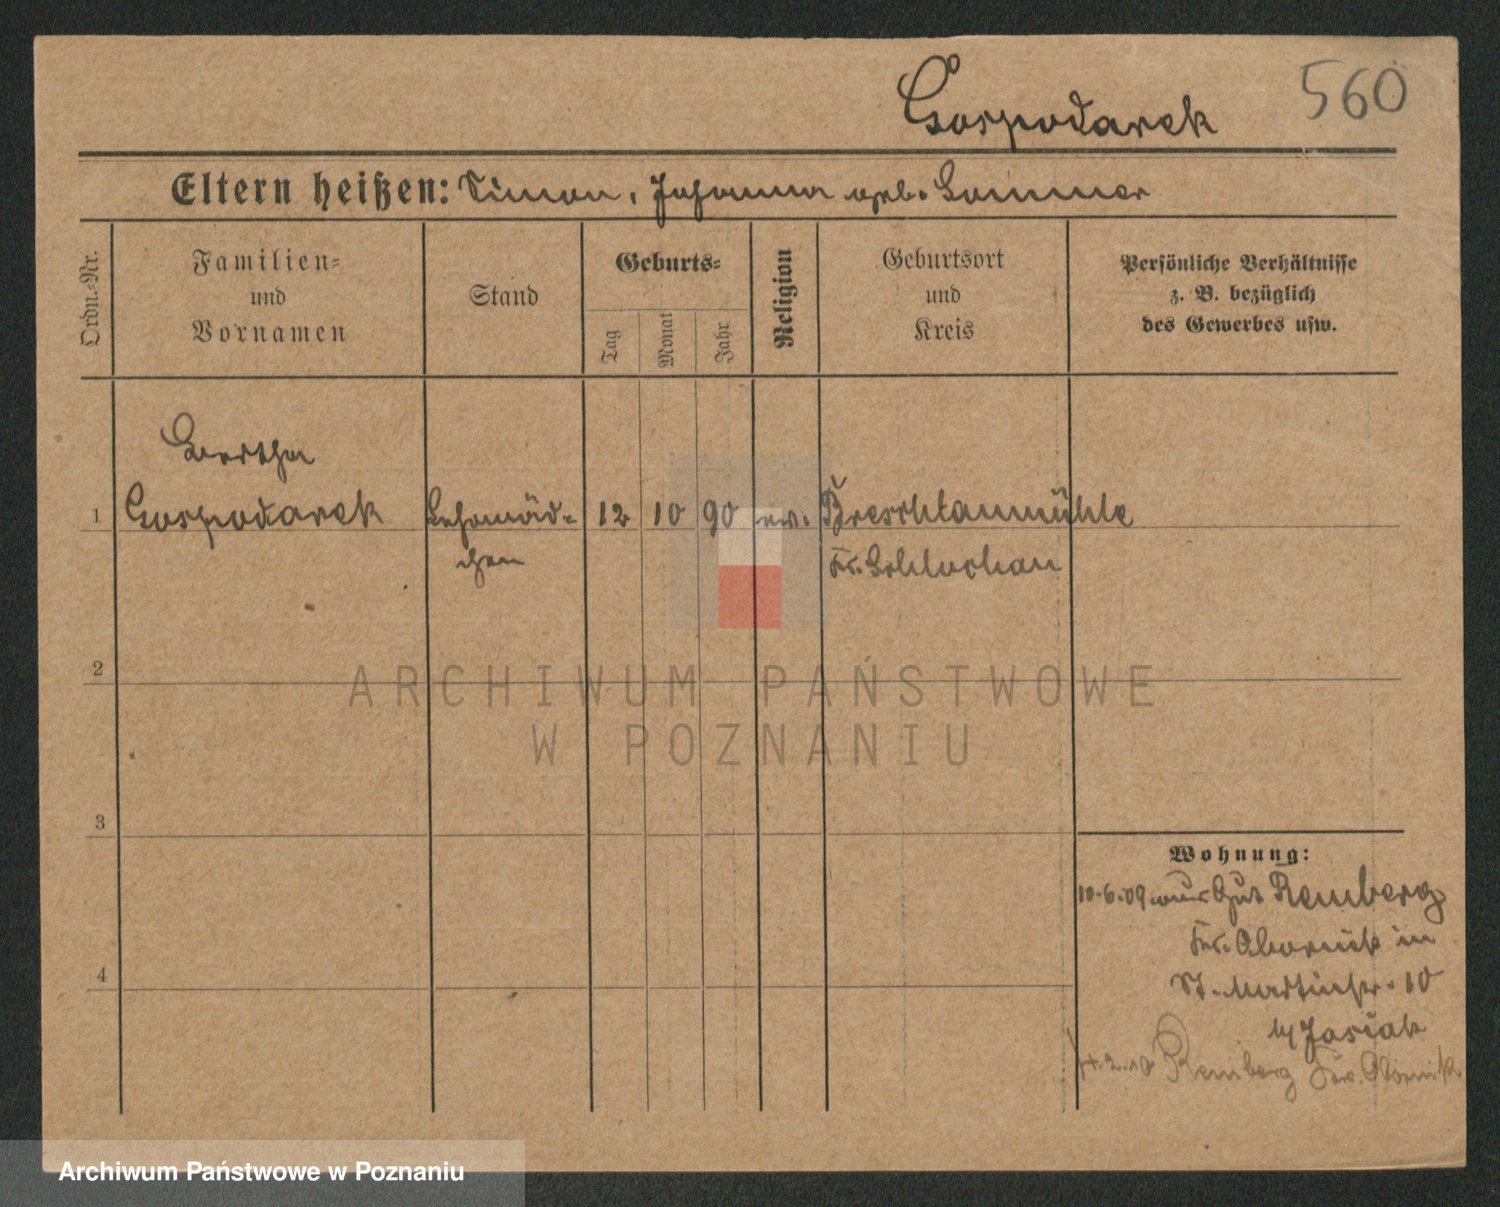 Gospodarek 560
Eltern heißen: Simon, Johanna geb. Sommer
Ordn.=Nr.
Familien=
und
Vornamen
Stand
Geburts=
Tag
Monat
Jahr
Religion
Geburtsort
und
Kreis
Persönliche Verhältnisse
z. B. bezüglich
des Gewerbes usw.
Bertha
1 Gospodarek 12 10 90 ev.
chen
Kr. Schlochau
2
ARCHIWUM PAŃSTWOWE
W POZNANIU
3
Wohnung:
10.6.09 Gut Remberg
Kr. Obornik in
St. Martinstr. 10
b/ Jasiak
Remberg Kr. Obornik
4
Archiwum Państwowe w Poznaniu